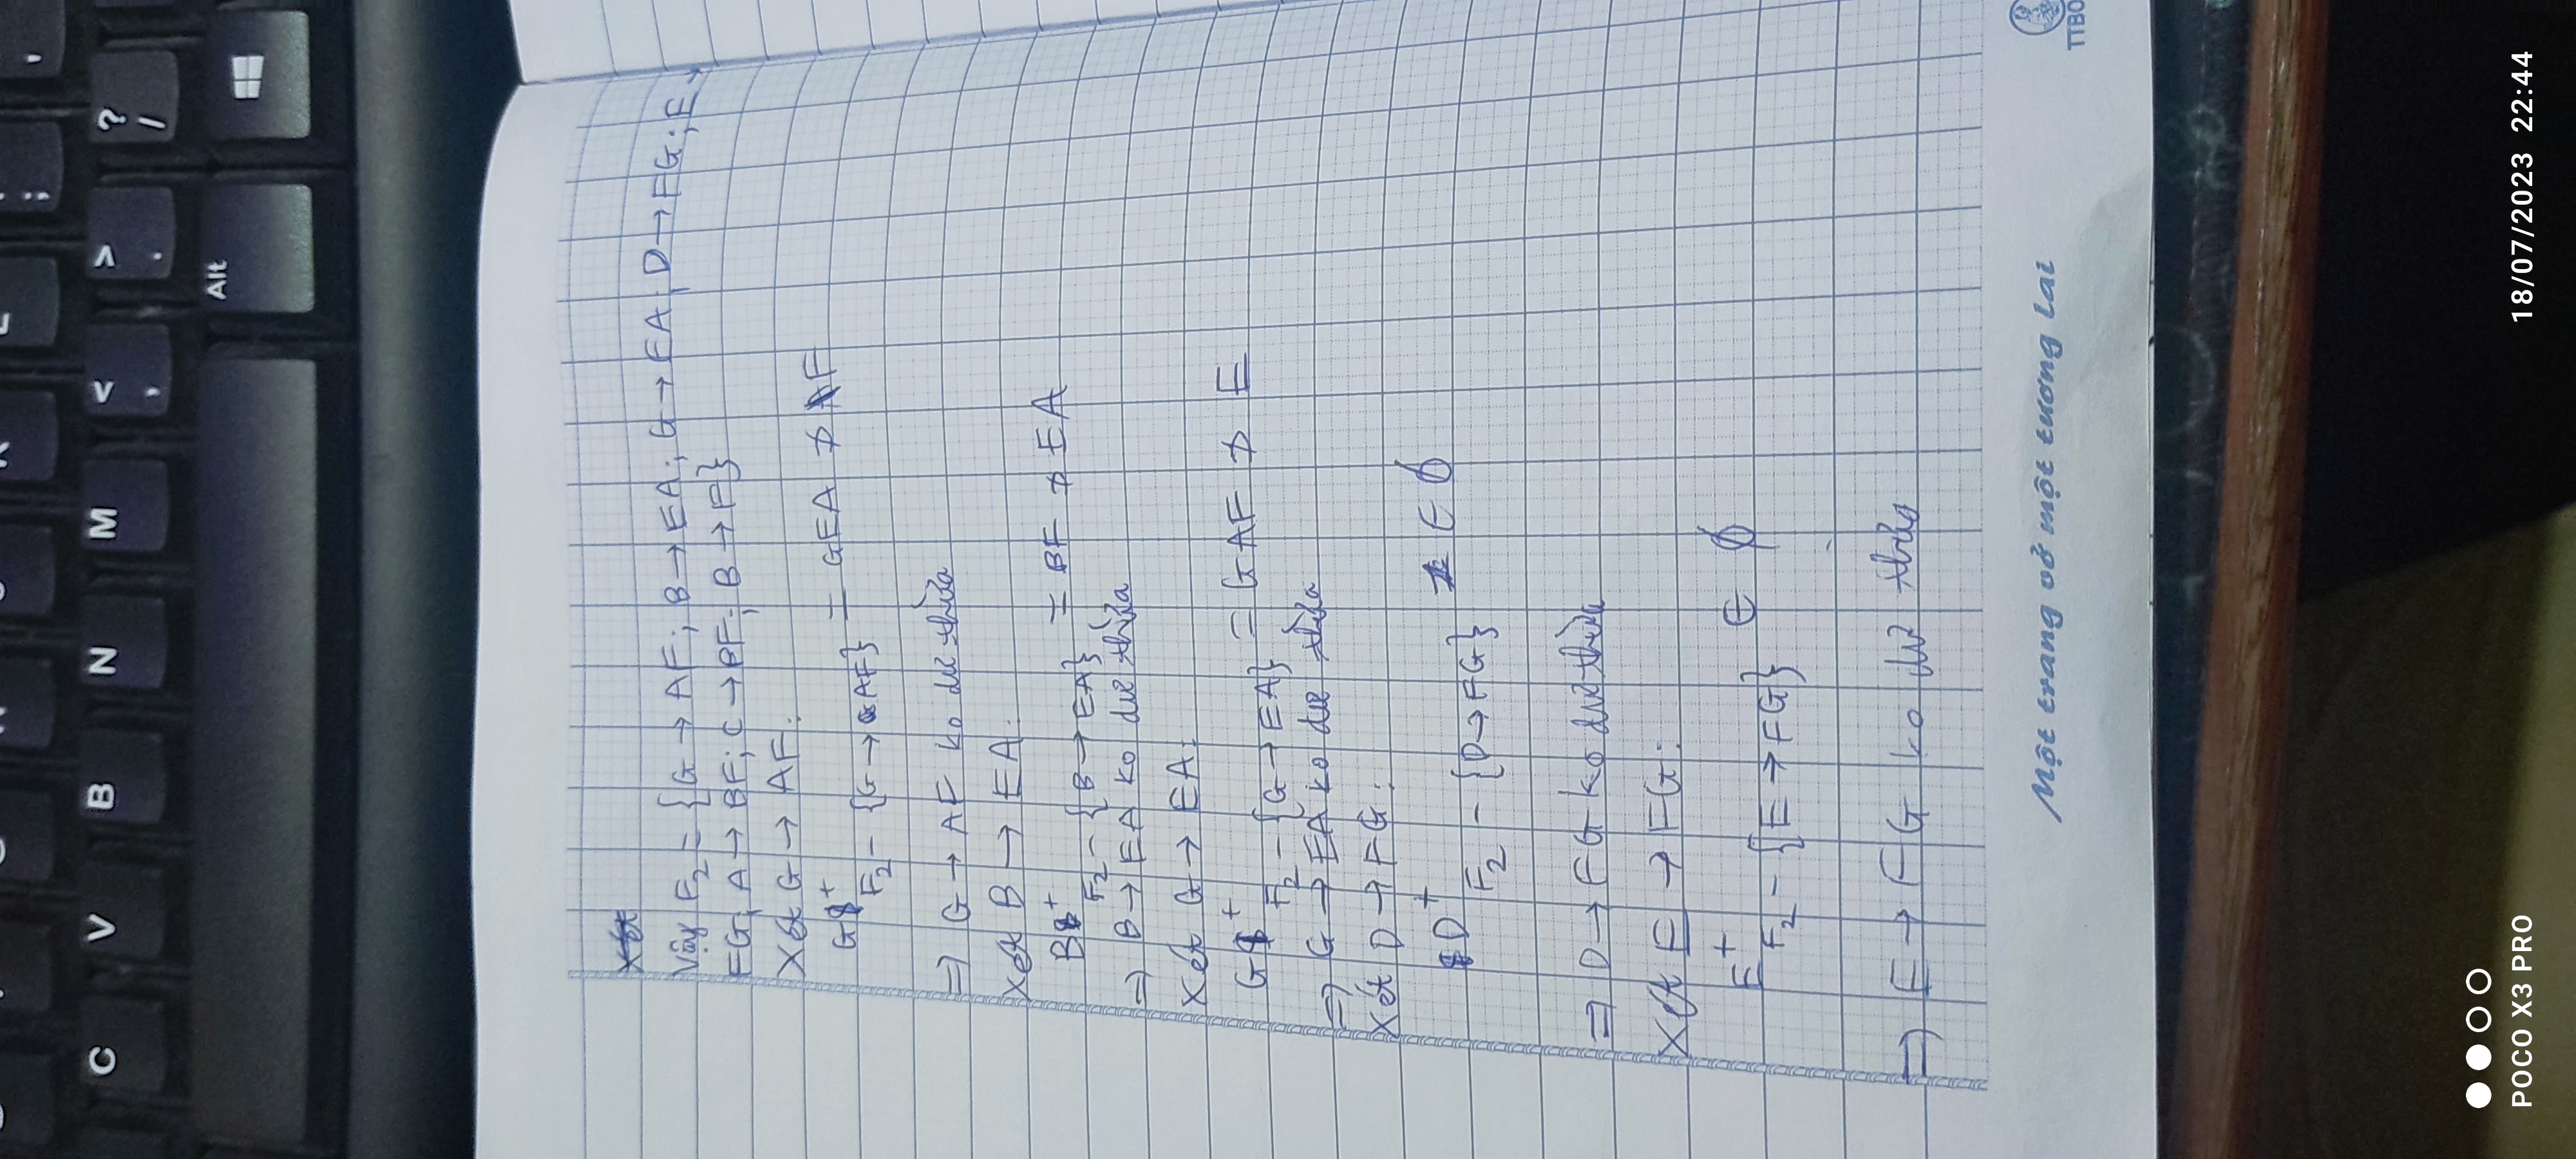 C V B N M < , > . ? /
Alt
Xét
Vậy F₂ = {G → AF; B → EA; G → EA; D → FG; E →
FG; A → BF; C → BF; B → F}
Xét G → AF:
G⁺ F₂ - {G → AF} = GEA ⊅ AF
⇒ G → AF ko dư thừa
Xét B → EA:
B⁺ F₂ - {B → EA} = BF ⊅ EA
⇒ B → EA ko dư thừa
Xét G → EA:
G⁺ F₂ - {G → EA} = GAF ⊅ E
⇒ G → EA ko dư thừa
Xét D → FG:
D⁺ F₂ - {D → FG} ∈ ∅
⇒ D → FG ko dư thừa
Xét E → FG:
E⁺ F₂ - {E → FG} ∈ ∅
⇒ E → FG ko dư thừa
Một trang vở một tương lai
TTBO
POCO X3 PRO
18/07/2023 22:44